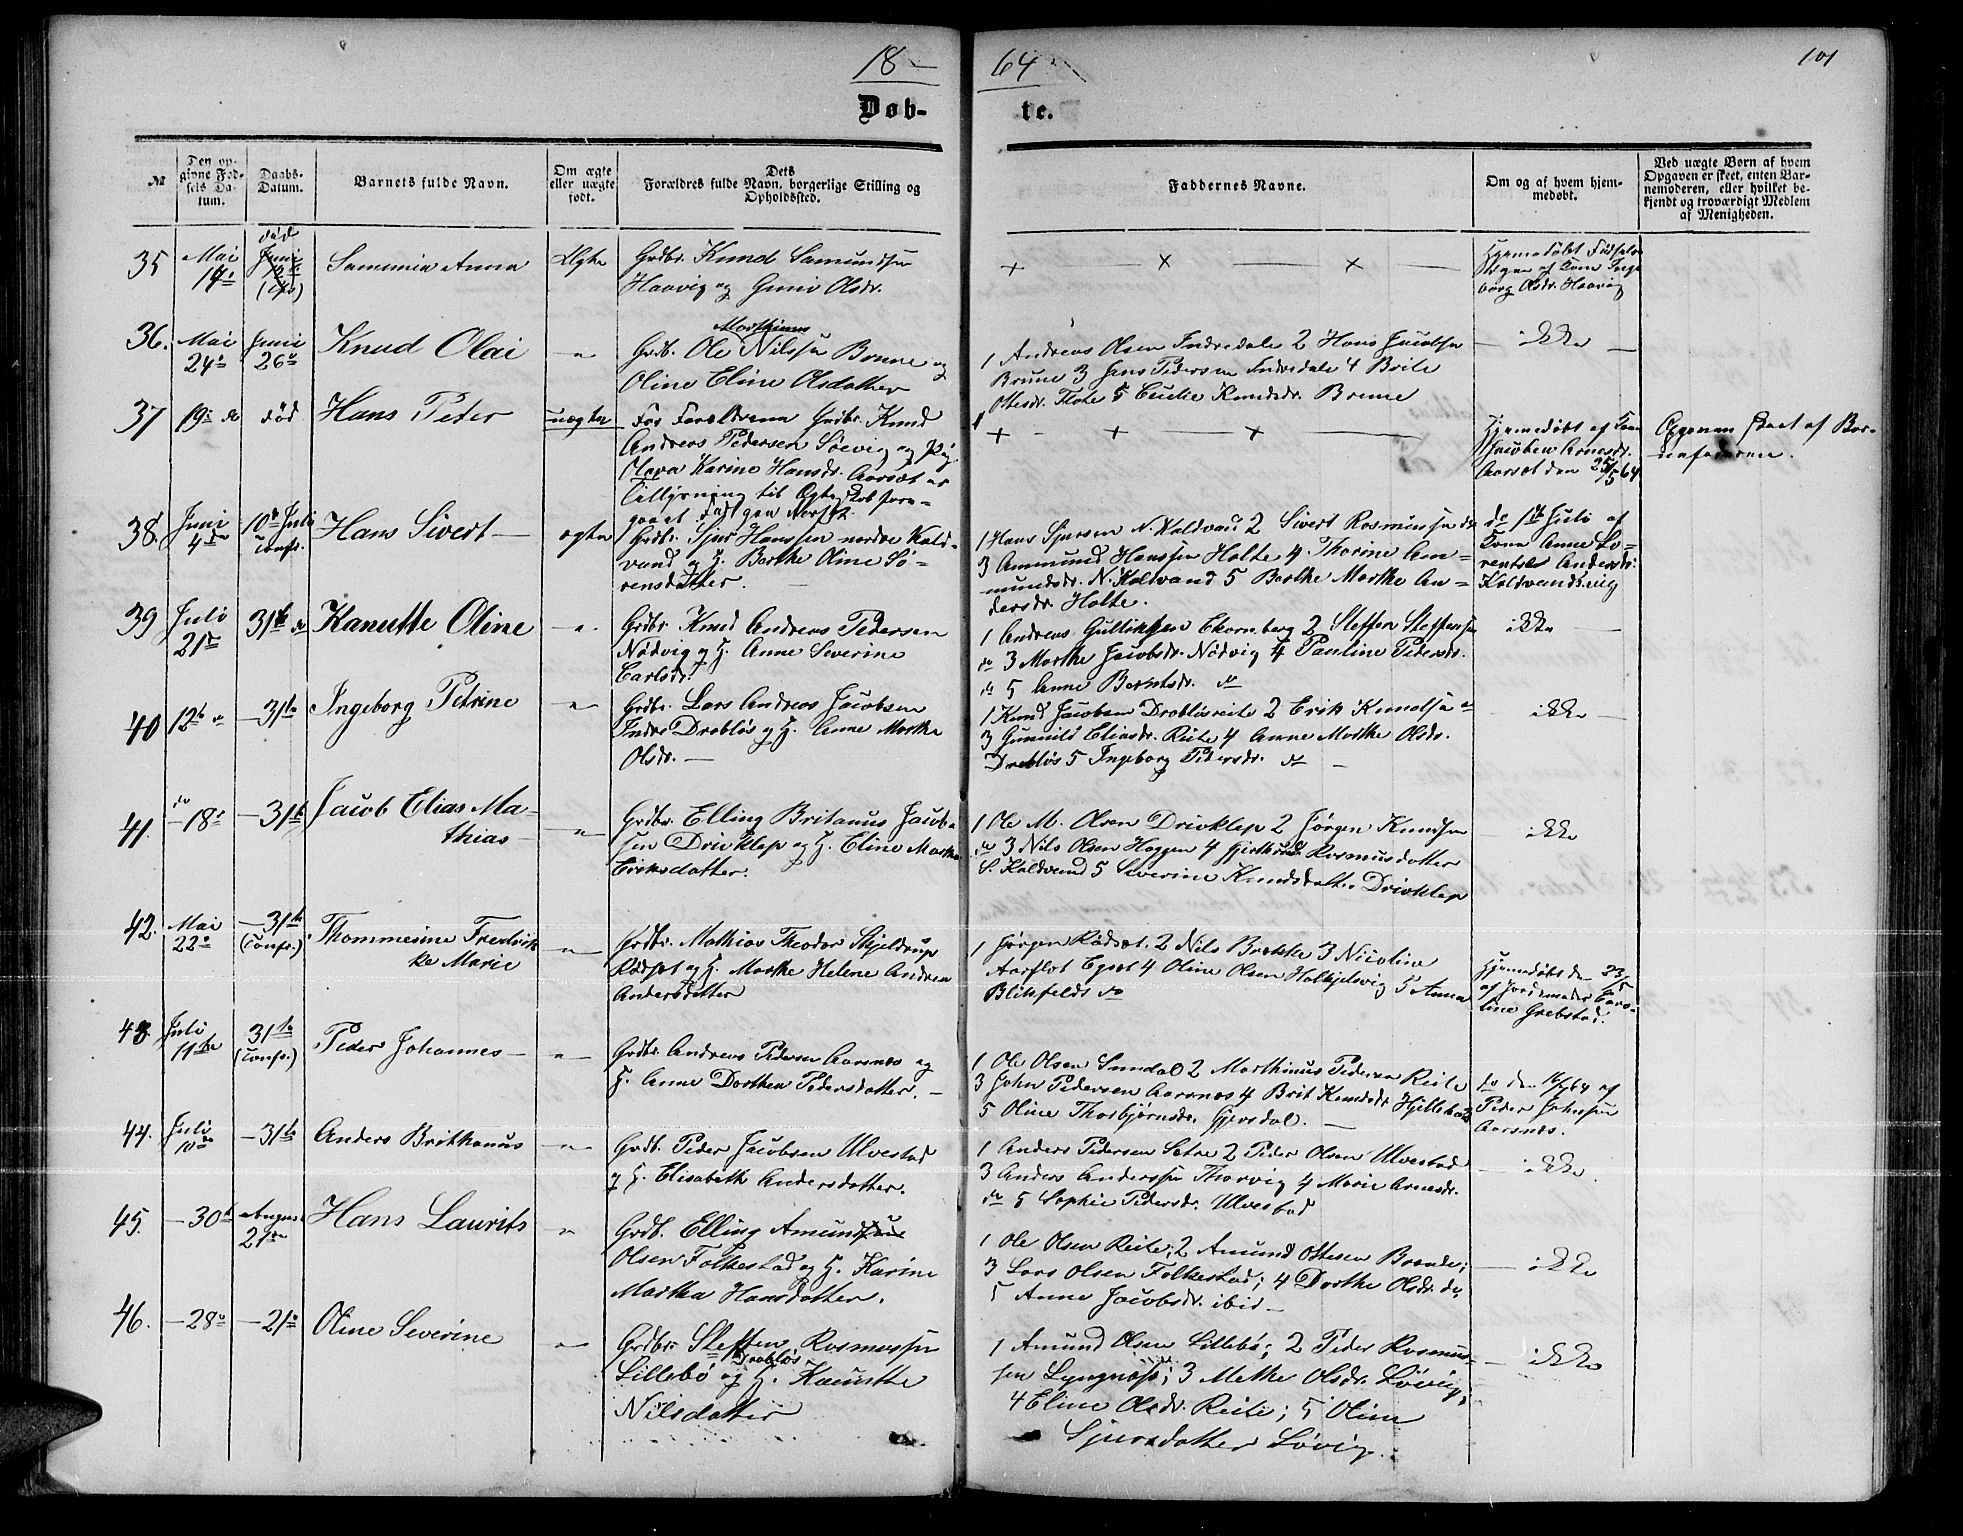 18 64
101
Døbte.
№
Den opgivne Fødsels Datum.
Daabs-Datum.
Barnets fulde Navn.
Om ægte eller uægte født.
Dets Forældres fulde Navn, borgerlige Stilling og Opholdssted.
Faddernes Navne.
Om og af hvem hjemmedøbt.
Ved uægte Børn af hvem Opgaven er skeet, enten Barnemoderen, eller hvilket bekjendt og troværdigt Medlem af Menigheden.
35 Mai 14de død Juni 12te
Ægte
Grdbr. Knud Samundsen
Haavig og Guni Olsdr.
+ × — × —
Hjemmedøbt Fødsels
borg Olsdr. Haavig
36. Mai 24de Juni 26de Knud Olai — " —
Morthinus
Grdb. Ole Nilssen Brune og
Oline Eline Olsdatter
1 Andreas Olsen Indredale 2 Hans Jacobsen
Brune 3 Jens Pedersen Indredale 4 Brite
Ottesdr. Flote 5 Cecilie Knudsdr. Brune
— ikke —
37 19de do død Hans Peder uægte
For Forældrene Grdbr. Knud
Andreas Pedersen Søevig og Pig.
Olava Karine Hansdr. Aarsæt er
Tillysning til Ægteskab fore-
gaaet
+ - + — + —
Hjemmedøbt af Kone
Jacoben Arnesdr.
Aarsæt den 25/5 64
Opgaven skeet af Bar-
nefaderen.
38. Juni 4de 10de Juli Confr. Hans Sivert — ægte
Grdbr. Sjur Hanssen nordre Kald-
vand og H. Berthe Oline Sø-
rensdatter. —
1 Hans Sjursen N. Kaldvad 2 Sivert Rasmussen do
3 Ammund Hanssen Holte 4 Thorine Am-
mundsdr. N. Kaldvand 5 Berthe Marthe An-
dersdr. Holte.
Juli af
Kone Anne Lo-
rentse Andersdr.
Kaldvandsvig
39 Juli 21de 31te do Kanutte Oline — " —
Grdbr. Knud Andreas Pedersen
Nødvig og H. Anne Severine
Carlsdr.
1 Andreas Gulliksen Ekornberg 2 Steffen Steffensen
do 3 Marthe Jacobsdr. Nødvig 4 Pauline Pedersdr.
do 5 Anne Berntsdr. do
ikke —
40 12te do — 31te Ingeborg Petrine — " —
Grdbr. Lars Andreas Jacobsen
Indre Drabløs og H. Anne Marthe
Olsdr. —
1 Knud Jacobsen Drabløsreite 2 Erik Knudsen do
3 Gunnild Eliasdr. Reite 4 Anne Marthe Olsdr.
Drabløs 5 Ingeborg Pedersdr. do —
— ikke —
41. do — 18de — 31te Jacob Elias Ma-
thias — — " —
Grdbr. Elling Britanus Jacob-
sen Drivklep og H. Eline Marthe
Eriksdatter.
1 Ole M. Olsen Drivklep 2 Jørgen Knudsen
do 3 Nils Olsen Haggen 4 Gjerthrud Rasmusdatter
S. Kaldvand 5 Severine Knudsdatter Drivklep
— ikke
42. Mai 22de — 31te (Confr.) Thommesine Fredrik-
ke Marie — " —
Grdbr. Mathias Theodor Skjeldrup
Rødset og H. Marthe Helene Andrea
Andersdatter
1 Jørgen Rødset. 2 Nils Brekke 3 Nicoline
Aarflot Egset 4 Oline Olsen Halkjelsvig 5 Anna
Blikfeldt do
Hjemmedøbt den 23/5
af Jordemoder Caro-
line Grebstad.
43. Juli 11te 31te (Confr.) Peder Johannes — — " —
Grdbr. Andreas Pedersen Aarsnes og
H. Anne Dorthea Pedersdatter. —
1 Ole Olsen Sundal 2 Morthinus Pedersen Reite
3 John Pedersen Aarsnes 4 Brit Knudsdr. Hjellebak
5 Oline Thorbjørnsdr. Gjevsdal. —
do den 14/7 64 af
Peder Johnsen
Aarsnes.
44. Juli 10de — 31te Anders Brithanus — " —
Grdb. Peder Jacobsen Ulvestad
og H. Elisabeth Andersdatter.
1 Anders Pedersen Sætre 2 Peder Olsen Ulvestad
3 Anders Anderssen Thorvig 4 Marie Arnesdr.
do 5 Sophie Pedersdr. Ulvestad
— ikke
45. — 30te August 21de Hans Laurits "
Grdb. Elling Amund
Olsen Folkestad og H. Karine
Marthea Hansdatter.
1 Ole Olsen Reite; 2 Amund Ottesen Brande;
3 Lars Olsen Folkestad; 4 Dorthe Olsdr. do,
5 Anne Jacobsdr. ibid —
— ikke
46. — 28de — 21de Oline Severine — " —
Grdbr. Steffen Rasmussen
Drabløs
Lillebø og H. Kanutte
Nilsdatter
1 Amund Olsen Lillebø; 2 Peder Rasmus-
sen Lyngnæs; 3 Methe Olsdr. Løvig;
4 Eline Olsdr. Reite; 5 Oline
Sjursdatter Løvig.
— ikke